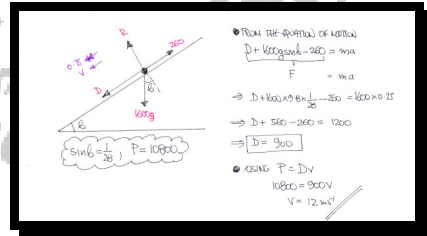 R
260
0.75
V
D
θ
θ
1600g
sinθ = 1/28, P = 10800
• FROM THE EQUATION OF MOTION
D + 1600gsinθ - 260 = ma
F = ma
⇒ D + 1600×9.8×1/28 - 260 = 1600×0.75
⇒ D + 560 - 260 = 1200
⇒ D = 900
• USING P = Dv
10800 = 900V
V = 12 ms⁻¹